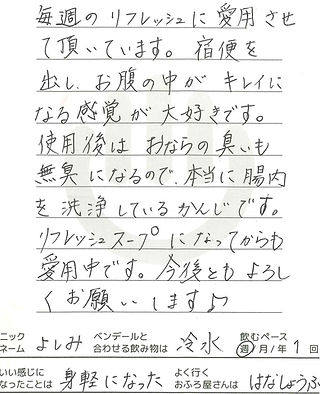 毎週の リフレッシュに 愛用させ
て頂いています。 宿便を
出し、お腹の中が キレイに
なる感覚が 大好きです。
使用後は おならの臭いも
無臭になるので、本当に腸内
を洗浄しているかんじです。
リフレッシュスープになってからも
愛用中です。今後ともよろし
くお願いします♪
ニックネーム よしみ ベンデールと合わせる飲み物は 冷水 飲むペース 週/月/年 1 回
いい感じになったことは 身軽になった よく行くおふろ屋さんは はなしょうぶ